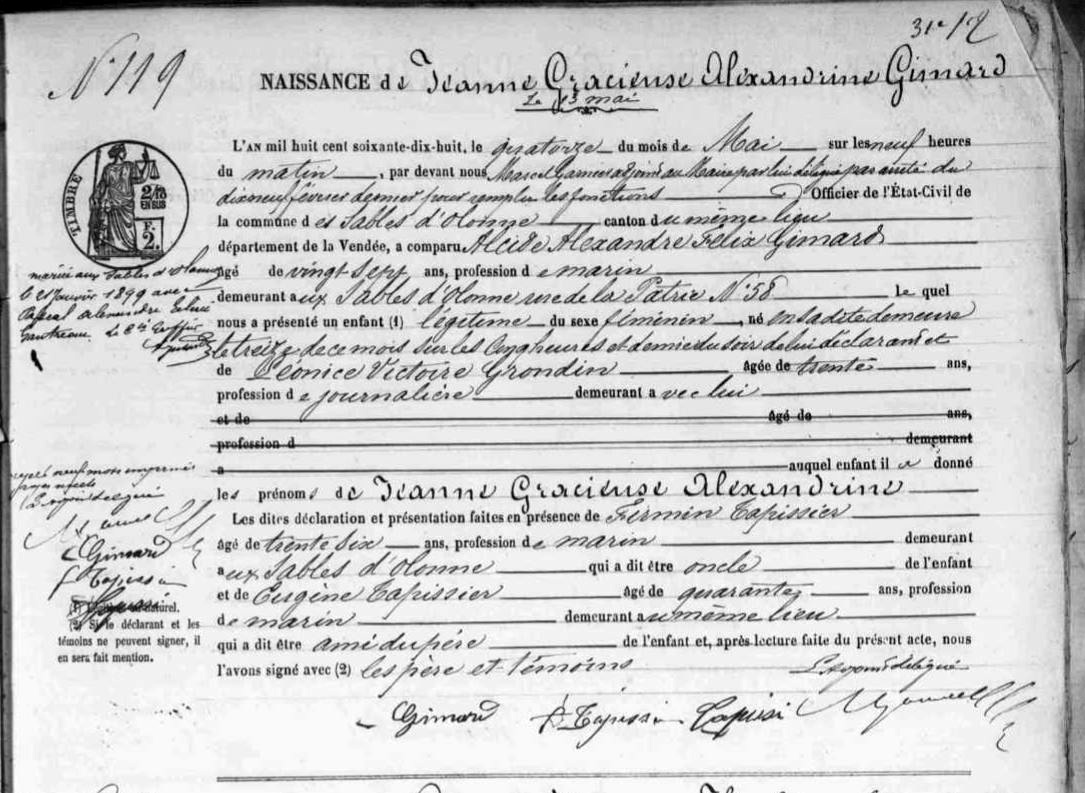 31e 12
N° 119
NAISSANCE de Jeanne Gracieuse Alexandrine Gimard
Le 13 mai
L'AN mil huit cent soixante-dix-huit, le quatorze du mois de Mai sur les neuf heures
du matin, par devant nous Marcel Garnier adjoint au Maire par lui délégué par arrêté du
dixneuf février dernier pour remplir les fonctions Officier de l'État-Civil de
la commune des Sables d'Olonne canton du même lieu
département de la Vendée, a comparu Alcide Alexandre Félix Gimard
âgé de vingt sept ans, profession de marin
demeurant aux Sables d'Olonne rue de la Patrie N° 58 Le quel
nous a présenté un enfant (1) légitime du sexe féminin, né en sa dite demeure
le treize de ce mois sur les cinq heures et demie du soir de lui déclarant et
de Léonice Victoire Grondin âgée de trente ans,
profession de journalière demeurant avec lui
et de âgé de ans,
profession d demeurant
a auquel enfant il a donné
les prénoms de Jeanne Gracieuse Alexandrine
Les dites déclaration et présentation faites en présence de Firmin Tapissier
âgé de trente six ans, profession de marin demeurant
aux Sables d'Olonne qui a dit être oncle de l'enfant
et de Eugène Tapissier âgé de quarante ans, profession
de marin demeurant au même lieu
qui a dit être ami du père de l'enfant et, après lecture faite du présent acte, nous
l'avons signé avec (2) les père et témoins
L'adjoint délégué
Gimard
TIMBRE
2/10
EN SUS
F.
2.
mariée aux Sables d'Olonne
le 21 Janvier 1899 avec
Pascal Alexandre
Gautreau. Le
rayé neuf mots imprimés
L'adjoint délégué
Gimard
(1) ou naturel.
(2) Si le déclarant et les
témoins ne peuvent signer, il
en sera fait mention.